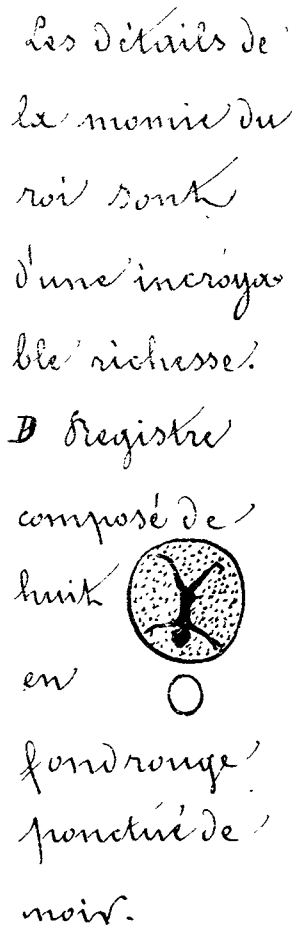 Les détails de
la momie du
roi sont
d'une incroya-
ble richesse.
D Registre
composé de
huit
en
fond rouge
ponctué de
noir.